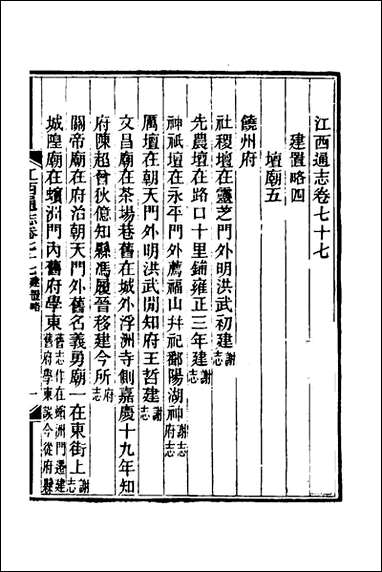 江西通志卷七十七
建置略四
壇廟五
饒州府
社稷壇在靈芝門外明洪武初建謝志
先農壇在路口十里鋪雍正三年建謝志
神祇壇在永平門外薦福山幷祀鄱陽湖神謝志府志
厲壇在朝天門外明洪武閒知府王哲建謝志
文昌廟在茶場巷舊在城外浮洲寺側嘉慶十九年知
府陳超曾狄億知縣馮履晉移建今所府志
關帝廟在府治朝天門外舊名義勇廟一在東街上謝志
城隍廟在蟶洲門內舊府學東舊志作在蟶洲門遷建舊府學東誤今從府縣
江西通志卷七十七 建置略 一